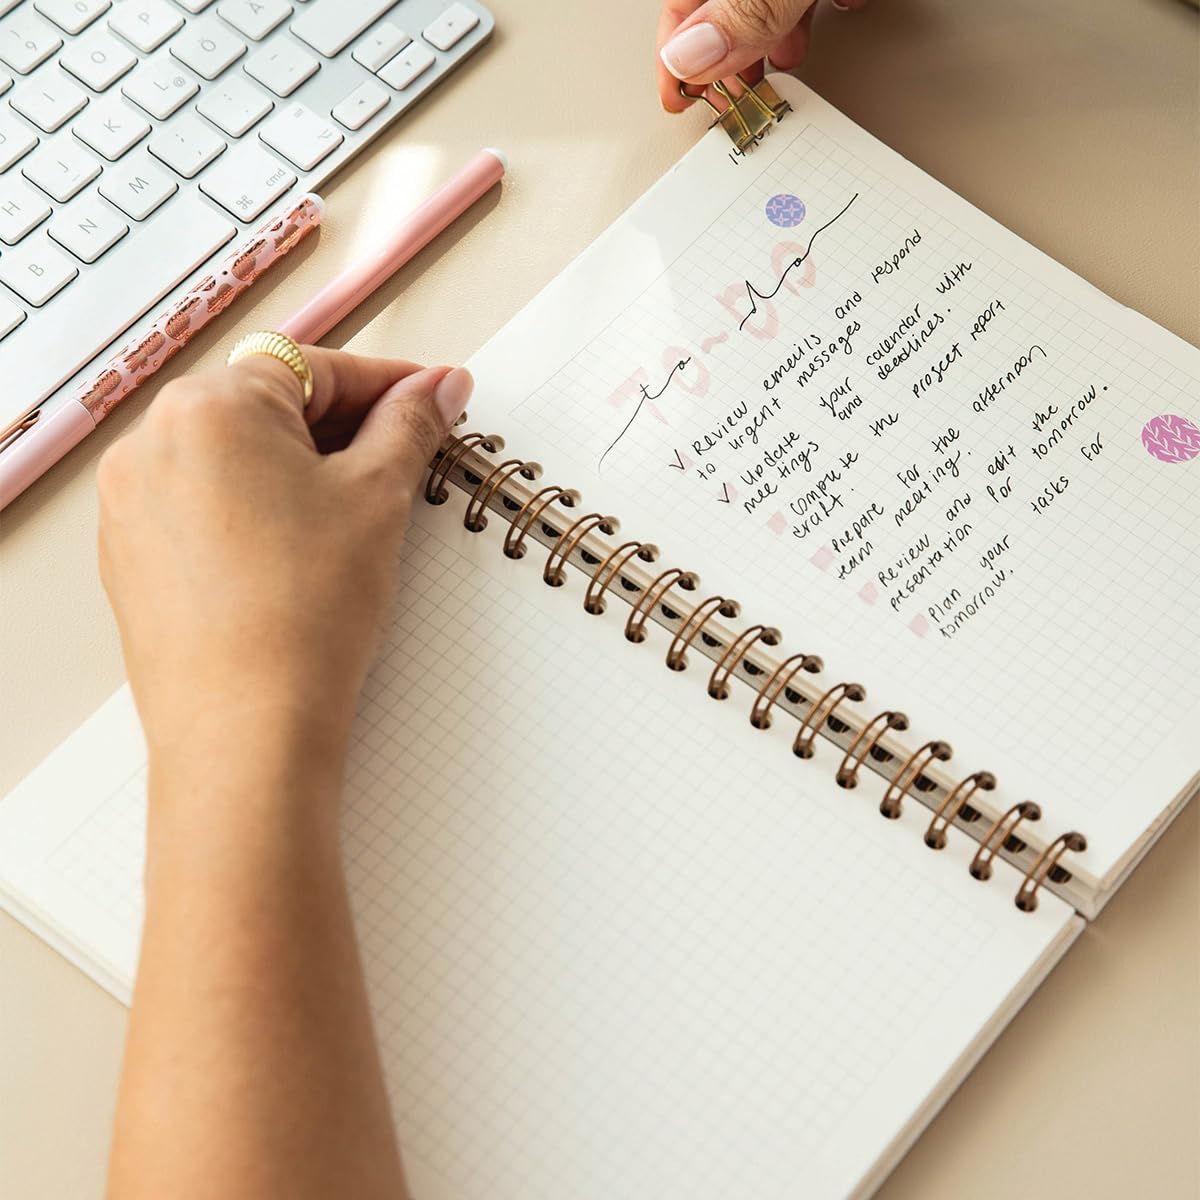 to do
TO-DO
✓ Review emails and respond
to urgent messages
✓ Update your calendar with
meetings and deadlines.
Compute the progect report
draft.
Prepare for the afternoon
team meating.
Review and edit the
presentation for tomorrow.
Plan your tasks for
tomorrow.
9
O
Ö
I
L @
K
J
M
H
N
B
⌘ cmd